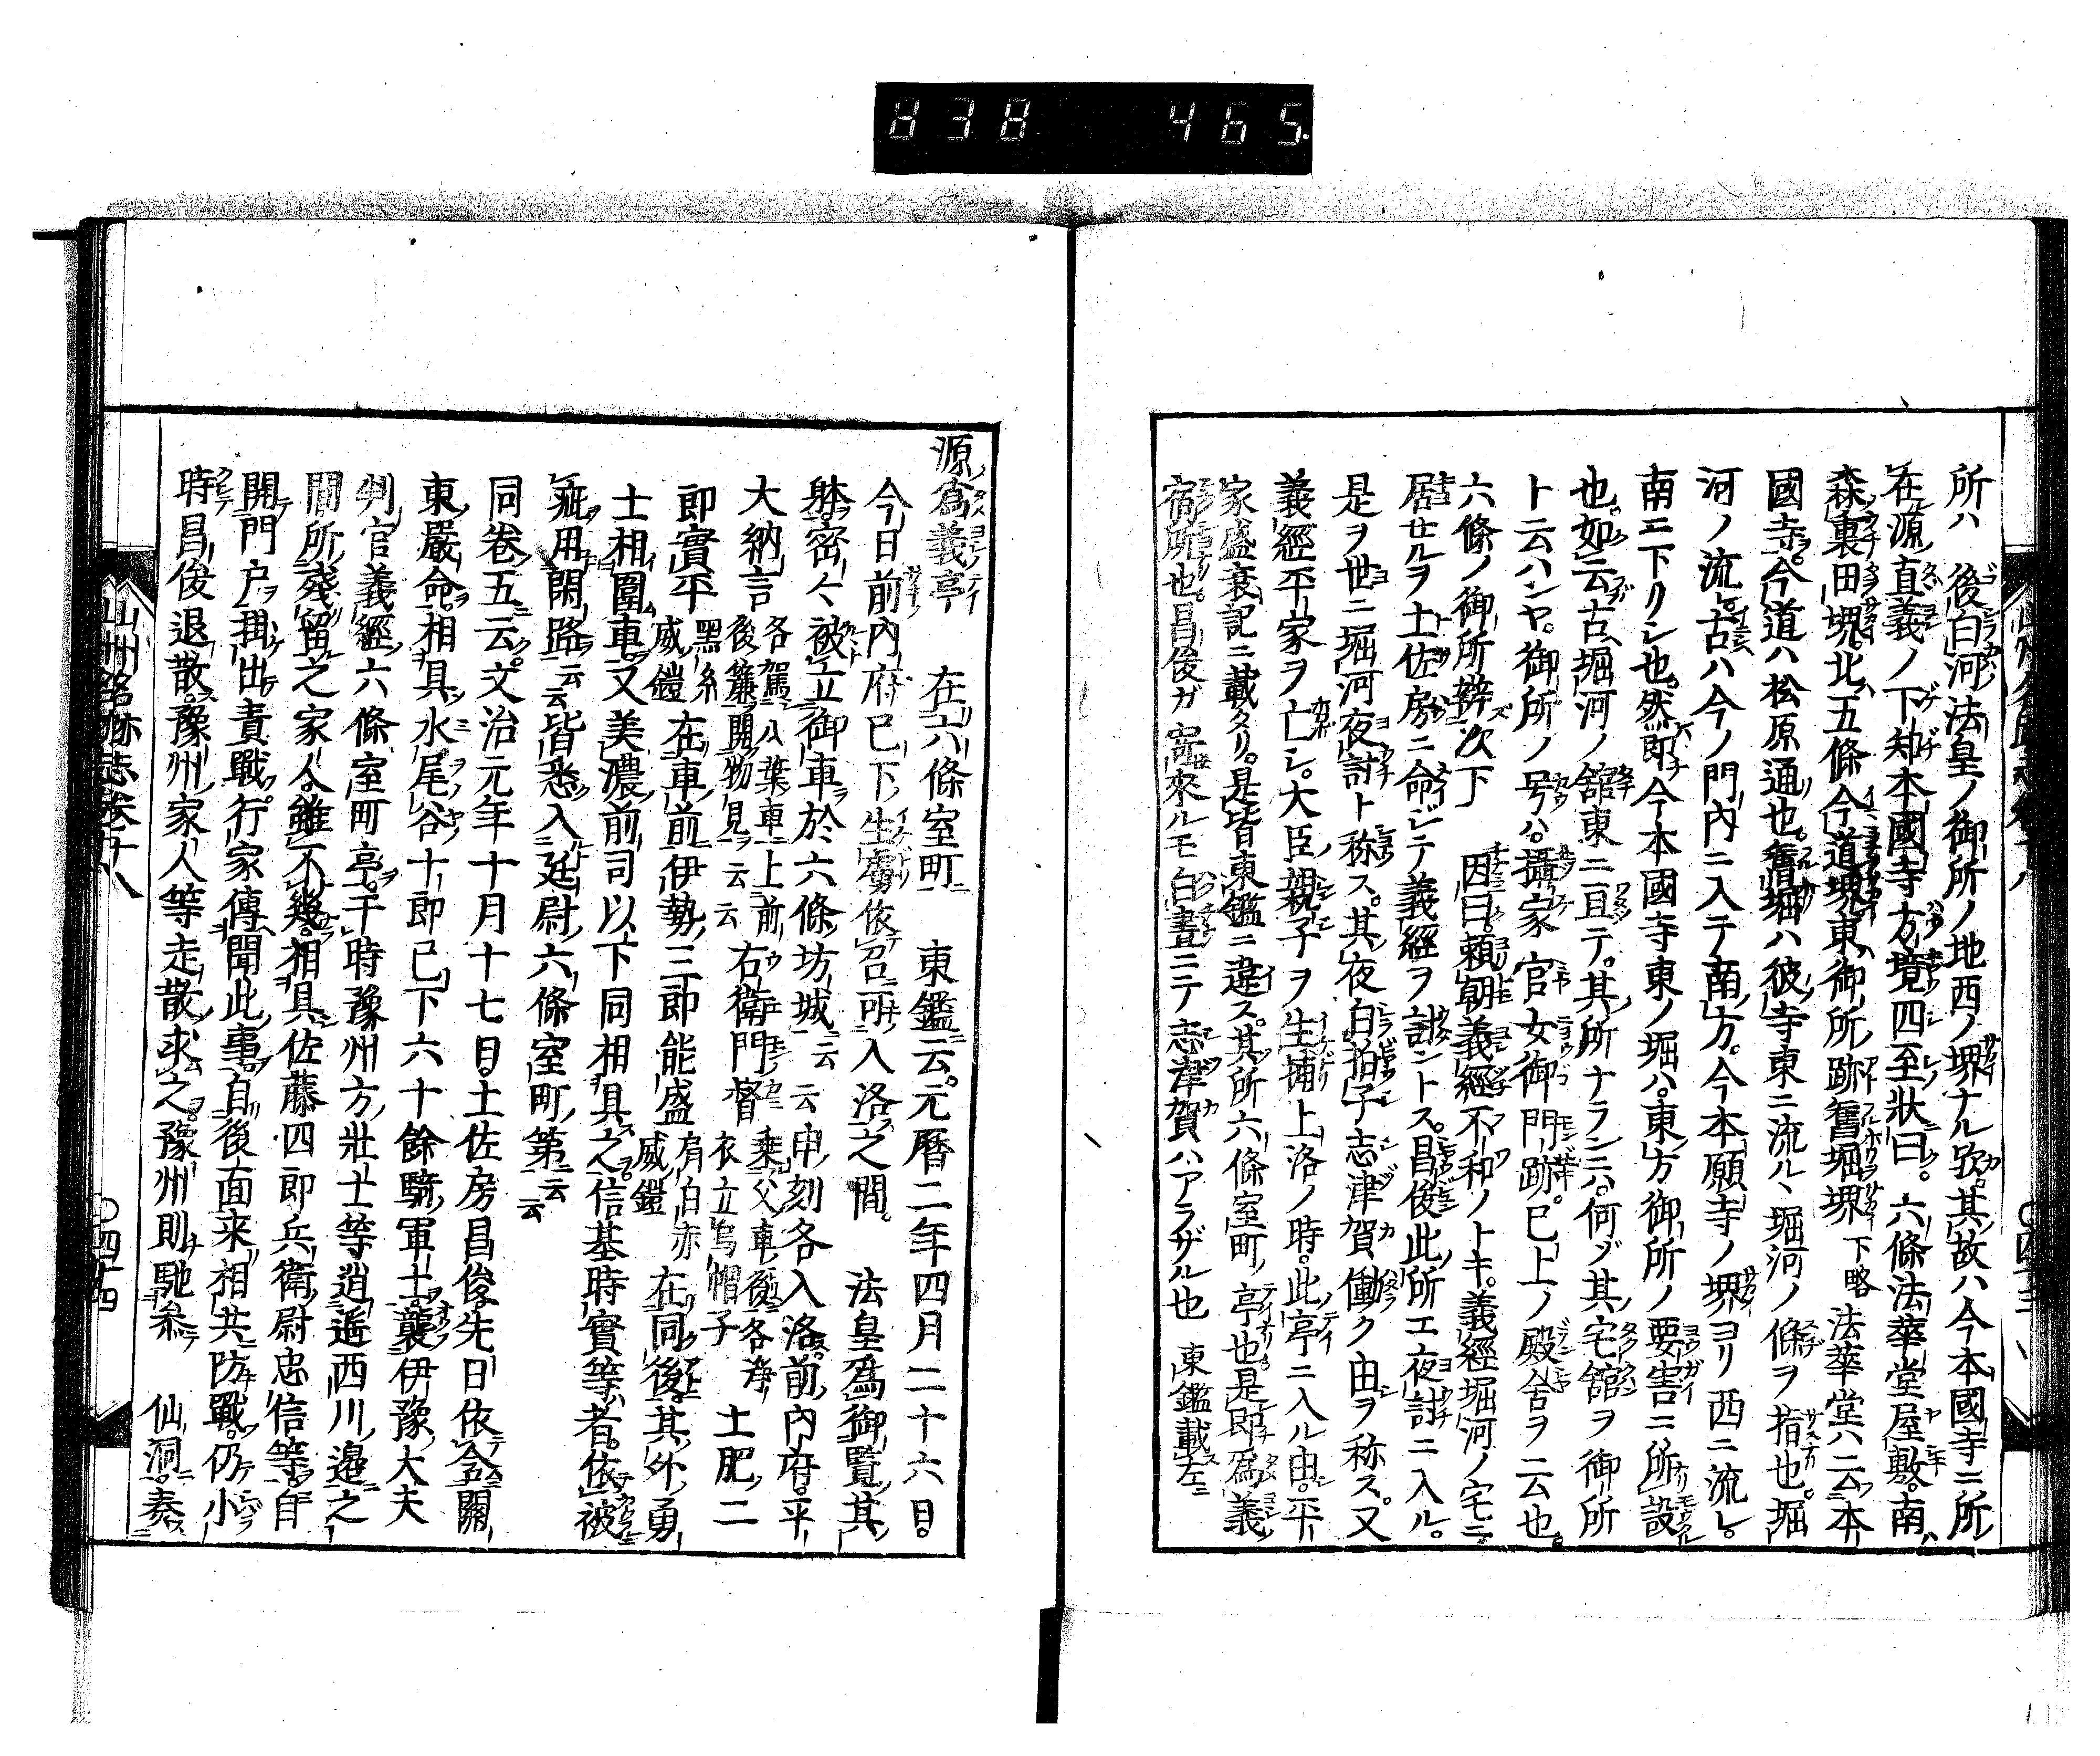 838 465
所ハ 後白河法皇ノ御所ノ地西ノ堺ナル欤。其故ハ今本國寺ニ所
在源直義ノ下知本國寺方境四至狀曰。六條法華堂屋敷。南ハ
森裏田堺。北ハ五條今道堺東ハ御所ノ跡舊堀堺下略法華堂六云本
國寺。今道ハ松原通也。舊堀ハ彼寺東ニ流ル丶堀河ノ條ヲ指也。堀
河ノ流。古ハ今ノ門内ニ入テ南方。今本願寺ノ堺ヨリ西ニ流レ。
南ニ下リシ也。然即今本國寺東ノ堀ハ。東方御所ノ要害ニ所設
也。如云古堀河ノ舘東ニ亘テ。其所ナランニハ。何ゾ其宅舘ヲ御所
ト云ハンヤ。御所ノ号ハ。攝家官女御門跡。巳上ノ殿舎ヲ云也。
六條ノ御所辨次下 因曰。頼朝義經不和ノトキ。義經堀河ノ宅ニ
居セルヲ土佐房ニ命シテ義經ヲ討ントス。昌俊此所エ夜討ニ入ル。
是ヲ世ニ堀河夜討ト称ス。其夜白拍子志津賀働ク由ヲ称ス。又
義經平家ヲ亡シ。大臣親子ヲ生捕上洛ノ時。此亭ニ入ル由。平
家盛衰記ニ載タリ。是皆東鑑ニ違ス。其所六條室町ノ亭也。是即爲義
宿所也。昌俊ガ寄來ルモ白晝ニテ志津賀ハアラザル也 東鑑載左ニ
源爲義亭 在六條室町 東鑑云。元暦二年四月二十六日。
今日前内府已下生虜依召可入洛之間。 法皇爲御覧其
躰。密々被立御車於六條坊城云云申刻各入洛。前内府。平
大納言各駕八葉車上前後簾開物見云云右衛門督乗父車後各浄衣立烏帽子土肥二
郎實平黒糸威鎧在車前伊勢三郎能盛肩白赤威鎧在同後。其外勇
士相圍車又美濃前司以下同相具之信基時實等者。依被
疵用閑路云云皆悉入廷尉六條室町第云云
同卷五云。文治元年十月十七日。土佐房昌俊。先日依含關
東嚴命。相具水尾谷十郎已下六十餘騎軍士。襲伊豫大夫
判官義經六條室町亭。于時豫州方壯士等逍遥西川邊之
間。所残留之家人雖不幾。相具佐藤四郎兵衛尉忠信等。自
開門戸掛出責戰。行家傳聞此事自後面来相共防戰。仍小
時昌俊退散。豫州家人等走散求之。豫州則馳参 仙洞。奏
山州名跡志卷十八
〇四十四